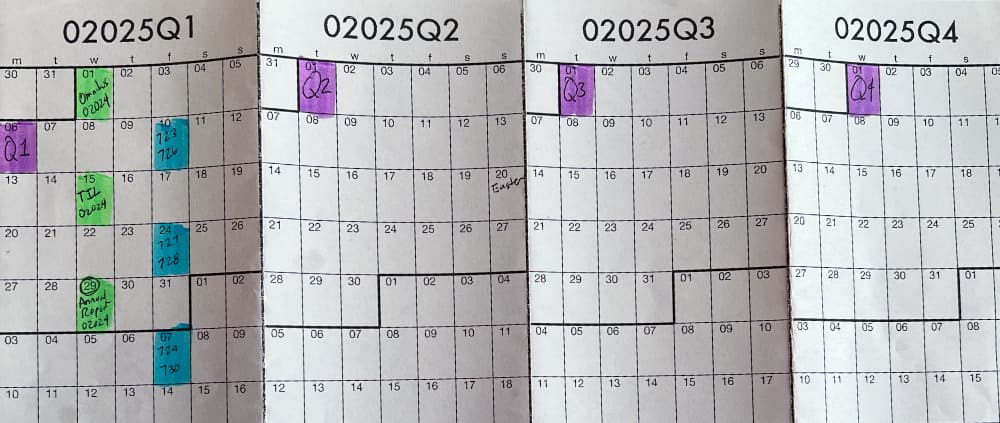 02025Q1
m t w t f s s
30 31 01 02 03 04 05
Omnibus
02024
06 07 08 09 10 11 12
Q1
723
726
13 14 15 16 17 18 19
TIL
02024
20 21 22 23 24 25 26
727
728
27 28 29 30 31 01 02
Annual
Report
02024
03 04 05 06 07 08 09
729
730
10 11 12 13 14 15 16
02025Q2
m t w t f s s
31 01 02 03 04 05 06
Q2
07 08 09 10 11 12 13
14 15 16 17 18 19 20
Easter
21 22 23 24 25 26 27
28 29 30 01 02 03 04
05 06 07 08 09 10 11
12 13 14 15 16 17 18
02025Q3
m t w t f s s
30 01 02 03 04 05 06
Q3
07 08 09 10 11 12 13
14 15 16 17 18 19 20
21 22 23 24 25 26 27
28 29 30 31 01 02 03
04 05 06 07 08 09 10
11 12 13 14 15 16 17
02025Q4
m t w t f s
29 30 01 02 03 04
Q4
06 07 08 09 10 11
13 14 15 16 17 18
20 21 22 23 24 25
27 28 29 30 31 01
03 04 05 06 07 08
10 11 12 13 14 15